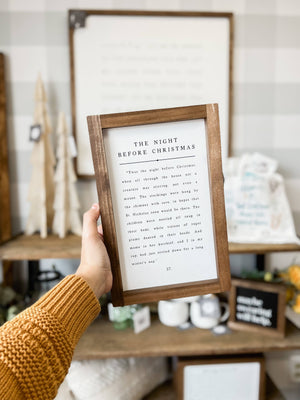 THE NIGHT
BEFORE CHRISTMAS
"Twas the night before Christmas
when all through the house not a
creature was stirring not even a
mouse. The stockings were hung by
the chimney with care in hope that
St. Nicholas soon would be there. The
children were nestled all snug in
their beds, while visions of sugar
plums danced in their heads. And
mama in her kerchief, and I in my
cap had just settled down for a long
winter's nap."
27.
maybe
swearing
will help